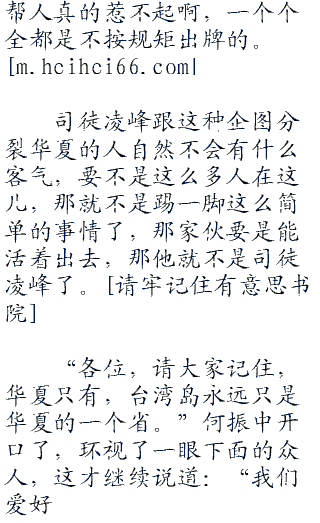 帮人真的惹不起啊，一个个
全都是不按规矩出牌的。
[m.hcihci66.com]
司徒凌峰跟这种企图分
裂华夏的人自然不会有什么
客气，要不是这么多人在这
儿，那就不是踢一脚这么简
单的事情了，那家伙要是能
活着出去，那他就不是司徒
凌峰了。[请牢记住有意思书
院]
“各位，请大家记住，
华夏只有，台湾岛永远只是
华夏的一个省。”何振中开
口了，环视了一眼下面的众
人，这才继续说道：“我们
爱好